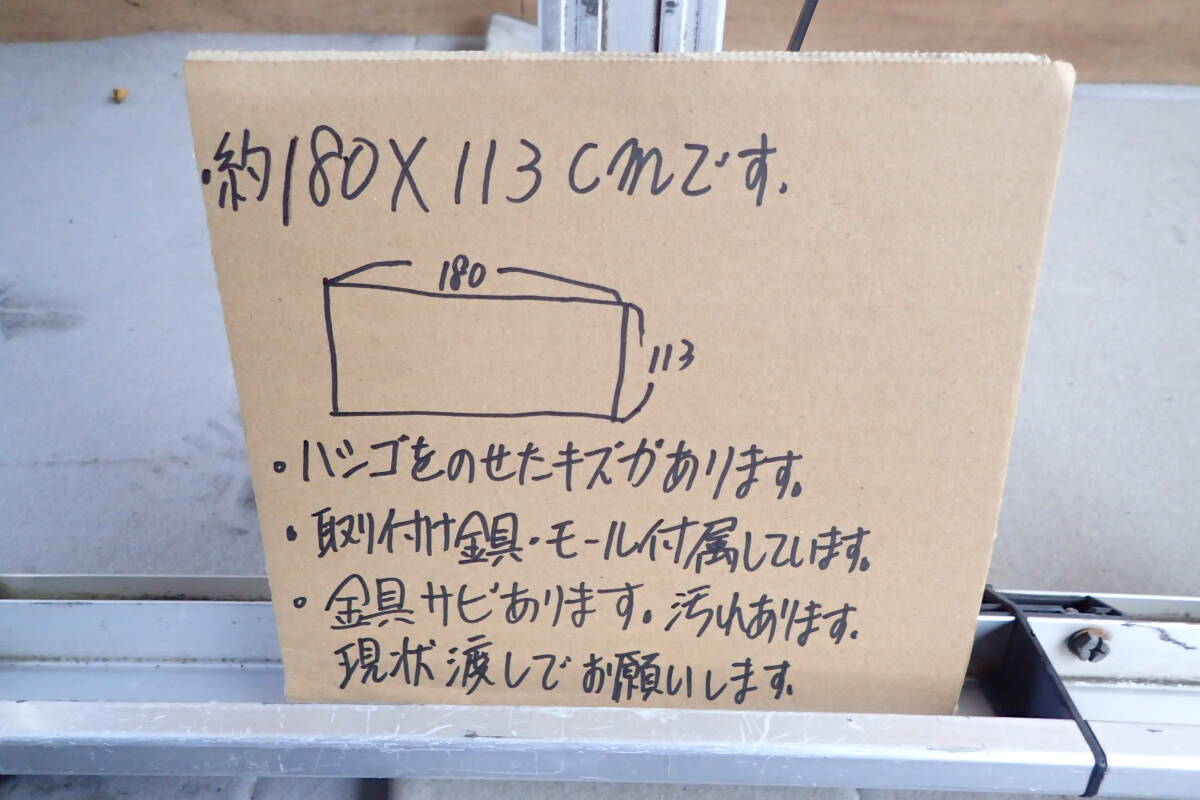 ・約180×113cmです.
180
113
・ハシゴをのせたキズがあります。
・取り付け金具・モール付属しています。
・金具サビあります。汚れあります。
現状渡しでお願いします。